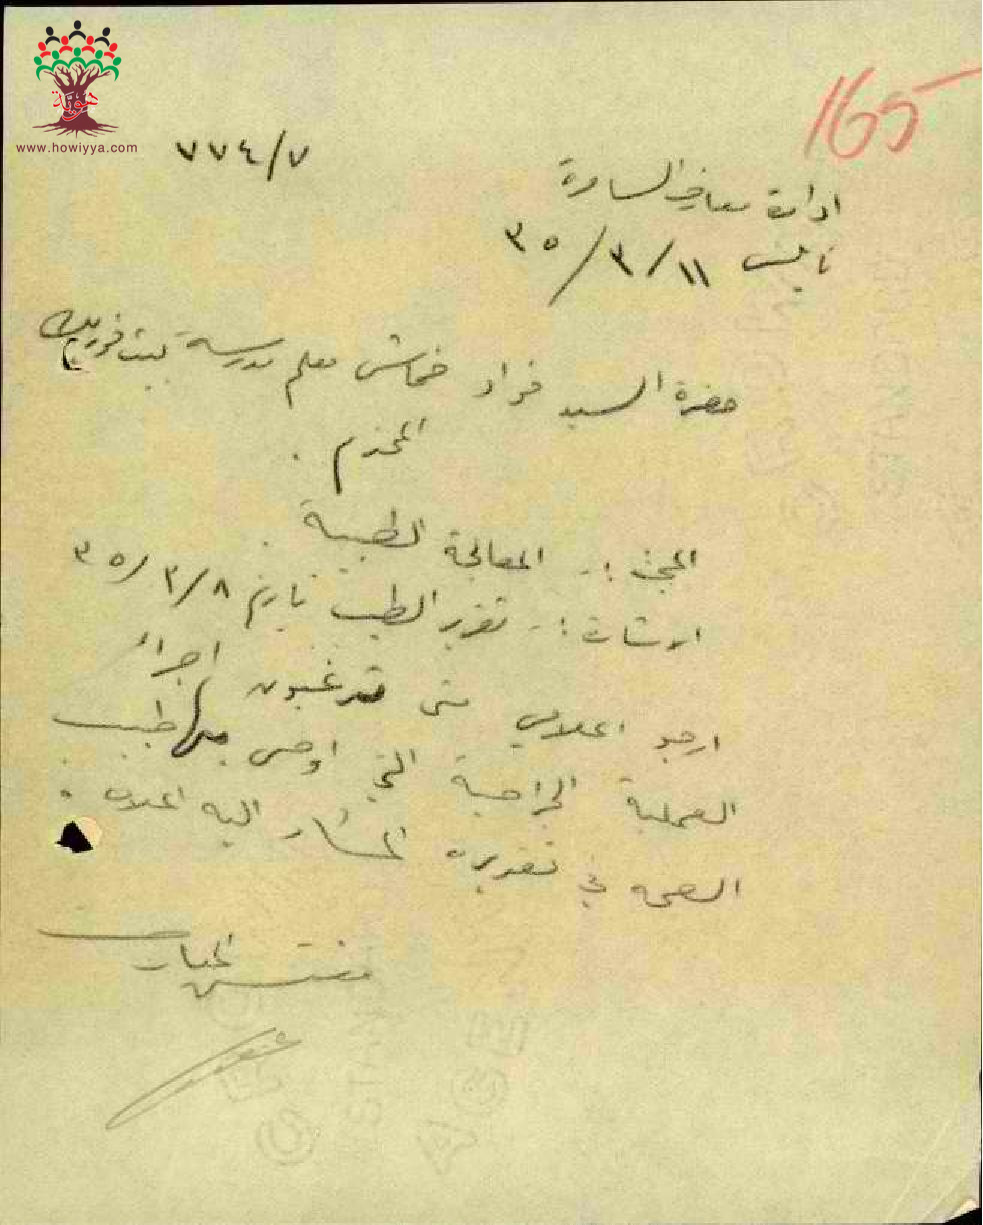 هوية
www.howiyya.com
165
٧٧٤/٧
ادارة معارف السامرة
نابلس ١١/٣/٣٥
حضرة السيد فؤاد خماش معلم مدرسة بيت فوريك
المحترم .
المبحث :- المعالجة الطبية .
الاشارة :- تقرير الطبيب تاريخ ٨/٣/٣٥
ارجو اعلامي متى ترغبون اجراء
العملية الجراحية التي اوصى بها طبيب
الصحه في تقريره المشار اليه اعلاه .
مفتش المعارف